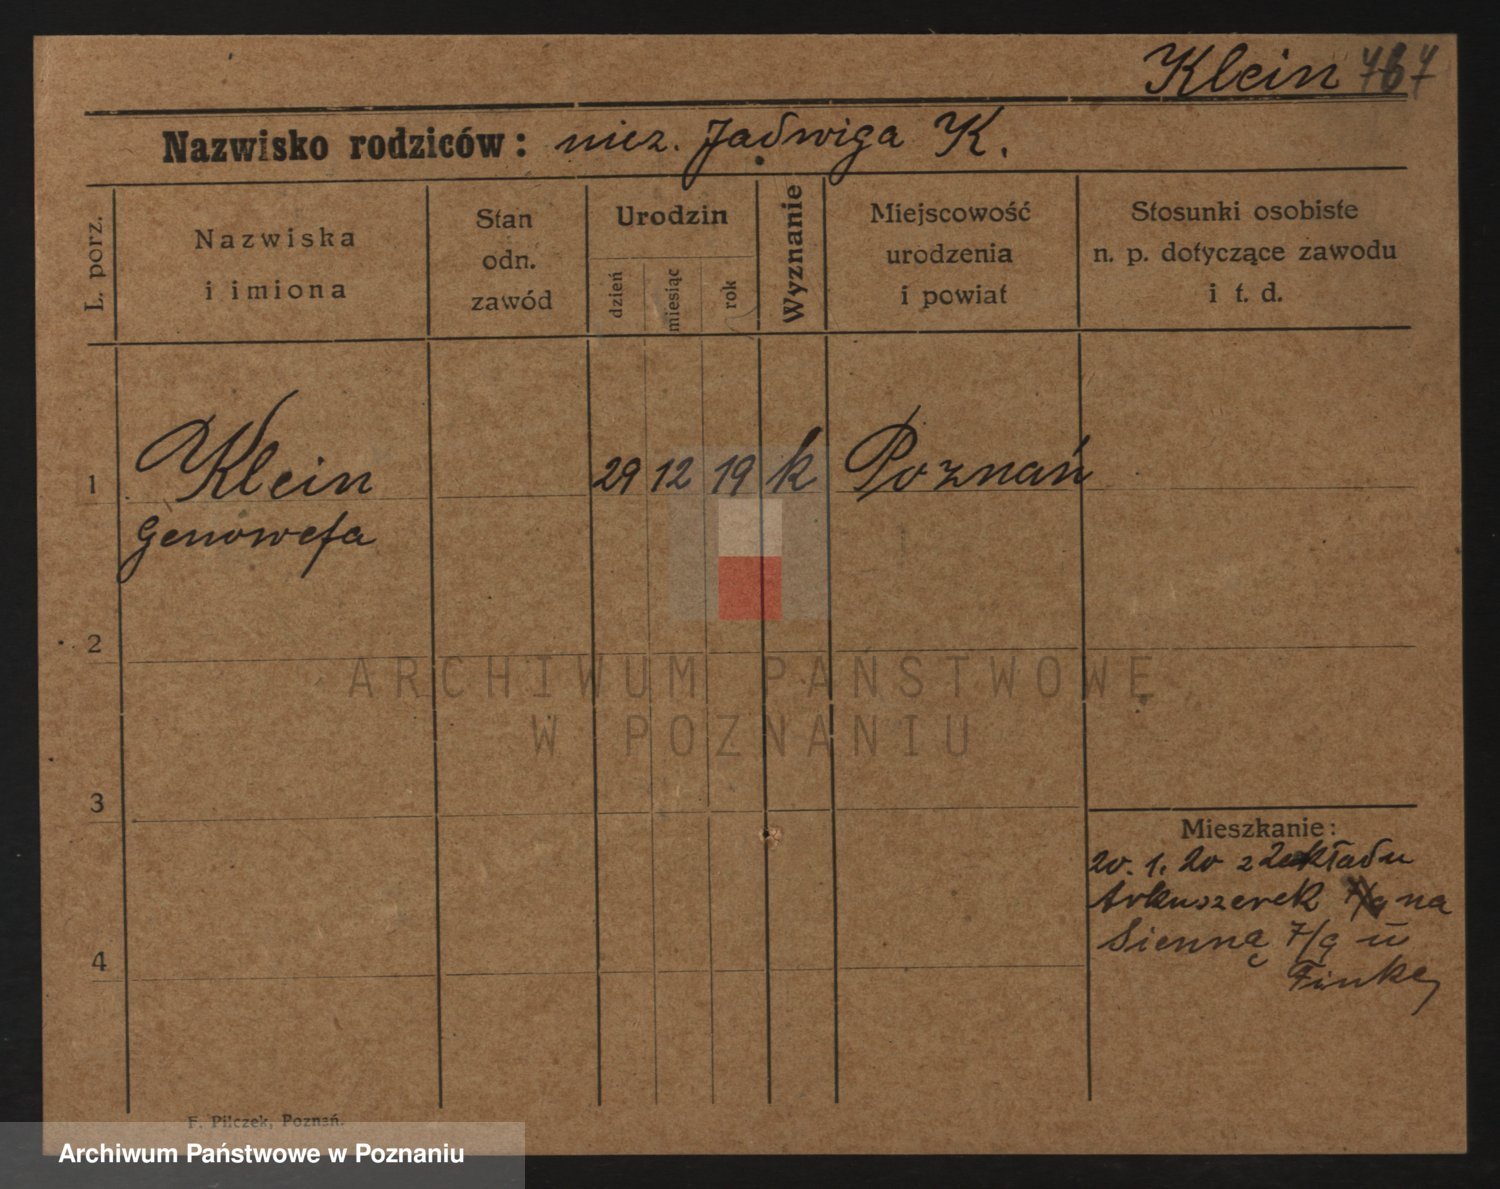 Klein 767
Nazwisko rodziców: niez. Jadwiga K.
L. porz.
Nazwiska
i imiona
Stan
odn.
zawód
Urodzin
dzień
miesiąc
rok
Wyznanie
Miejscowość
urodzenia
i powiat
Stosunki osobiste
n. p. dotyczące zawodu
i t. d.
1
Klein
Genowefa
29 12 19 k Poznań
2
3
4
Mieszkanie:
20. 1. 20 z Zakładu
Arkuszerek na
Sienną 7/9 u
Finke
ARCHIWUM PAŃSTWOWE
W POZNANIU
F. Pilczek, Poznań.
Archiwum Państwowe w Poznaniu